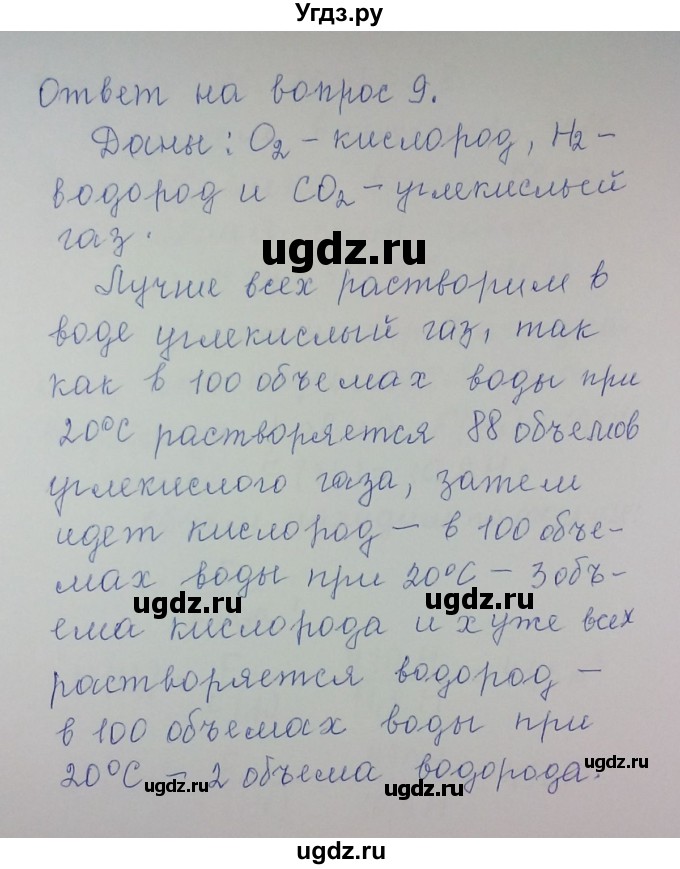 Угдз.ру
Ответ на вопрос 9.
Даны: O₂ – кислород, H₂ –
водород и CO₂ – углекислый
газ.
ugdz.ru
Лучше всех растворим в
воде углекислый газ, так
как в 100 объемах воды при
20°C растворяется 88 объемов
углекислого газа, затем
идет кислород – в 100 объе-
мах воды при 20°C – 3 объ-
ugdz.ru
ugdz.ru
ема кислорода и хуже всех
растворяется водород –
в 100 объемах воды при
20°C – 2 объема водорода.
ugdz.ru
ugdz.ru
ugdz.ru
ugdz.ru